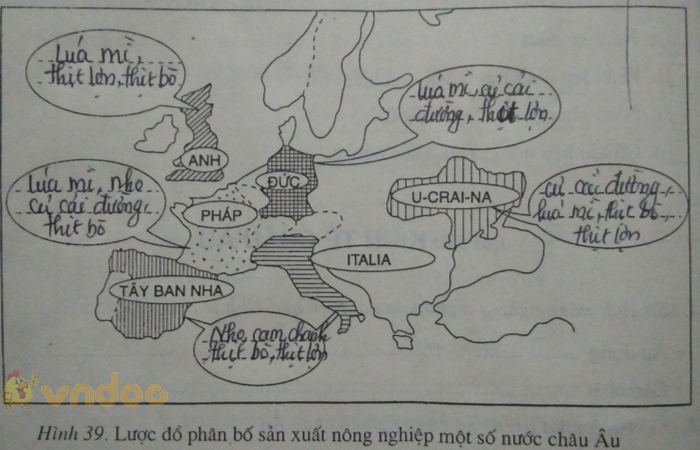 Lúa mì,
thịt lớn, thịt bò
lúa mì, củ cải
đường, thịt lớn
ANH
ĐỨC
lúa mì, nho
củ cải đường,
thịt bò
PHÁP
U-CRAI-NA
củ cải đường,
lúa mì, thịt bò,
thịt lớn
ITALIA
TÂY BAN NHA
Nho, cam, chanh
thịt bò, thịt lớn
vndoc
Hình 39. Lược đồ phân bố sản xuất nông nghiệp một số nước châu Âu